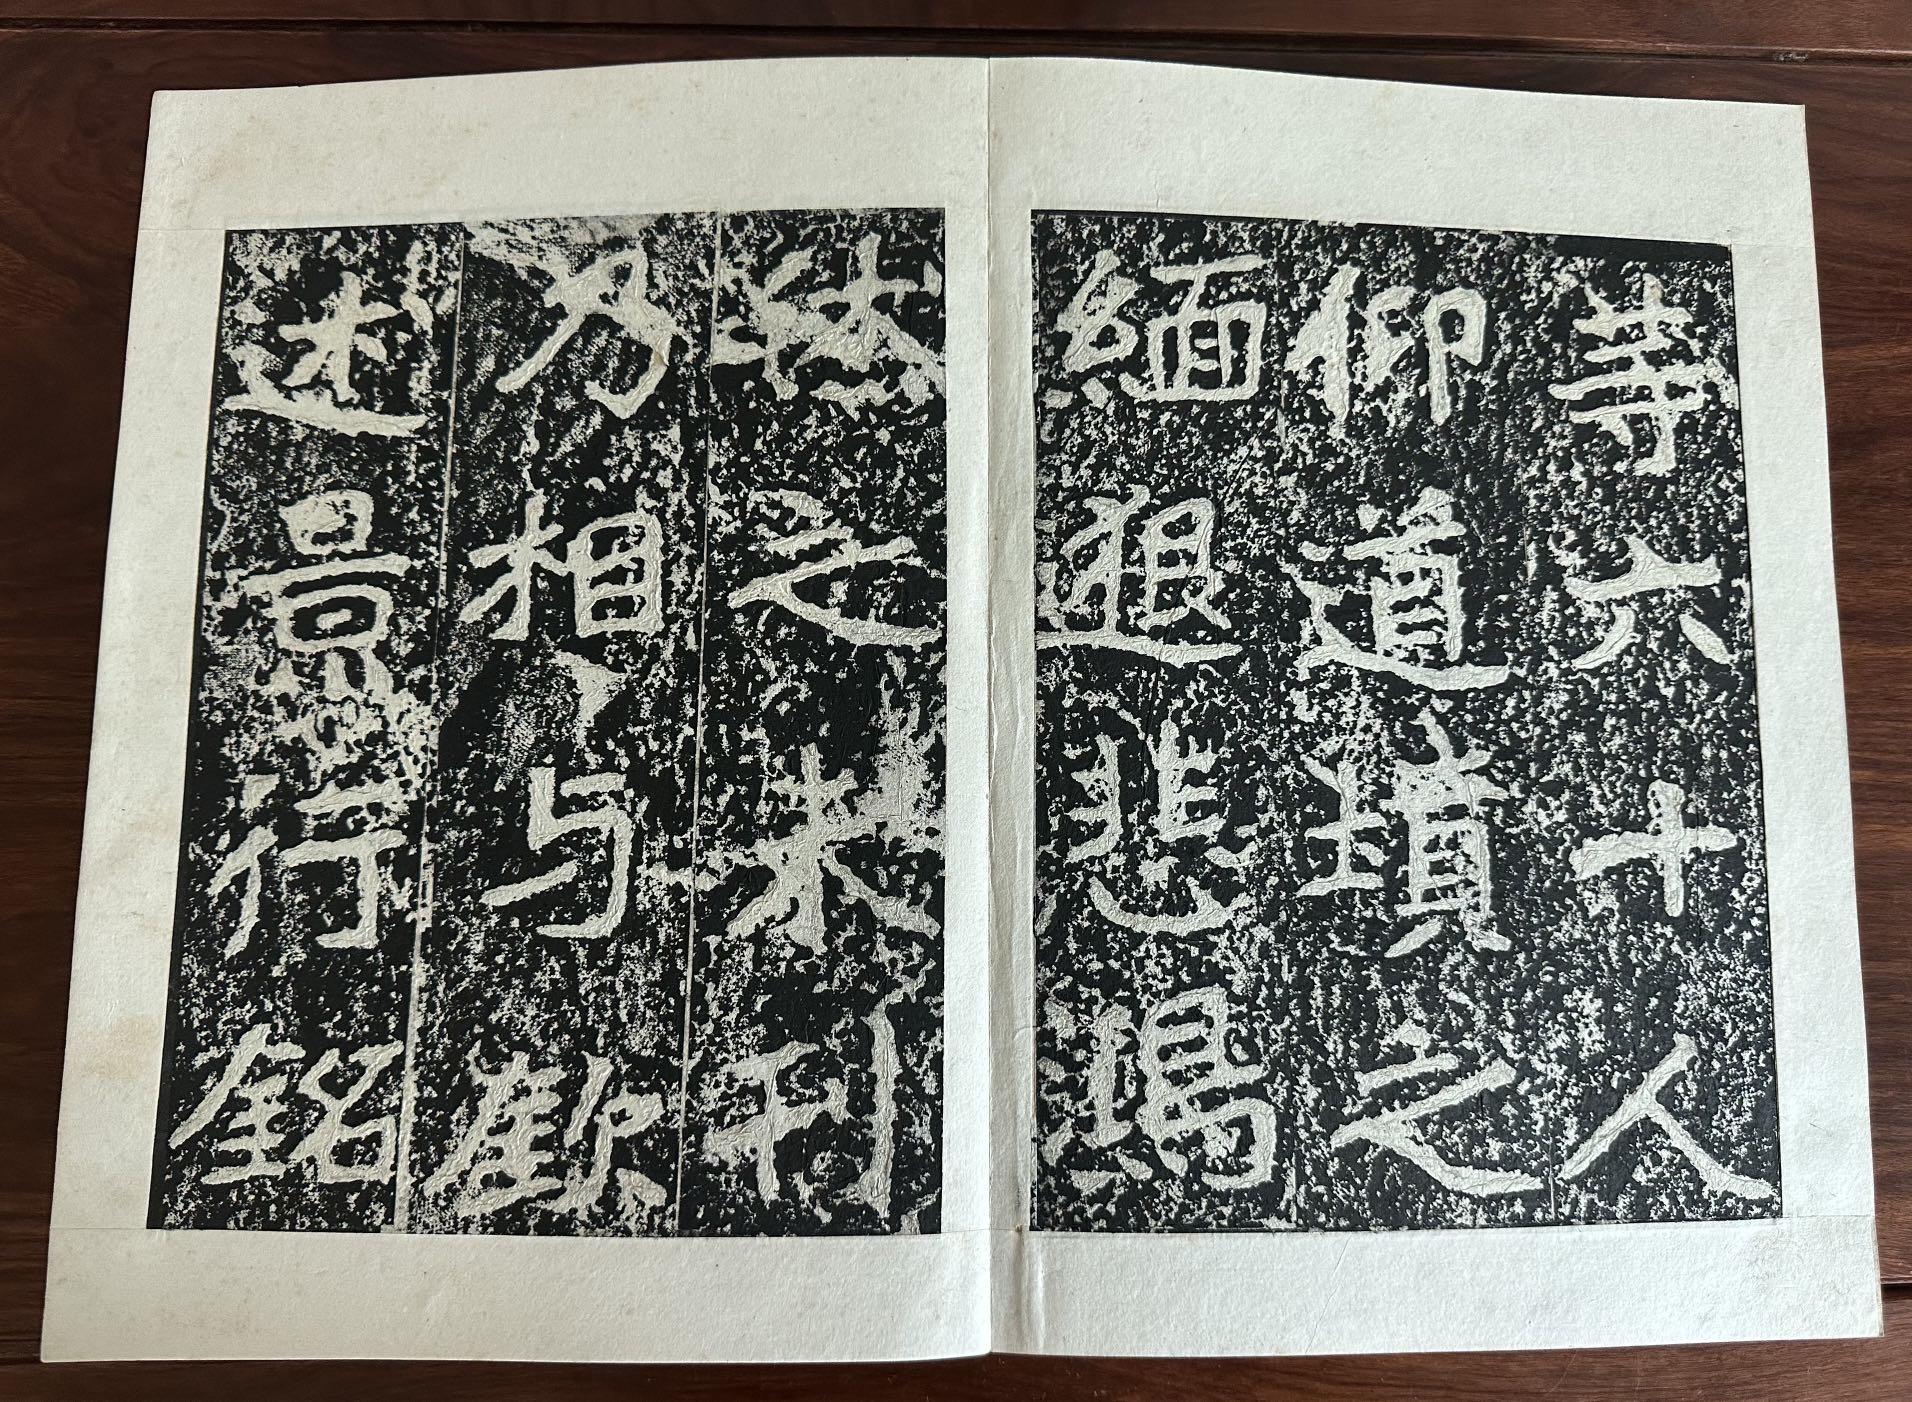 等六十人
仰道墳之
緬邈悲鴻
休之未刊
乃相与欽
述景行銘